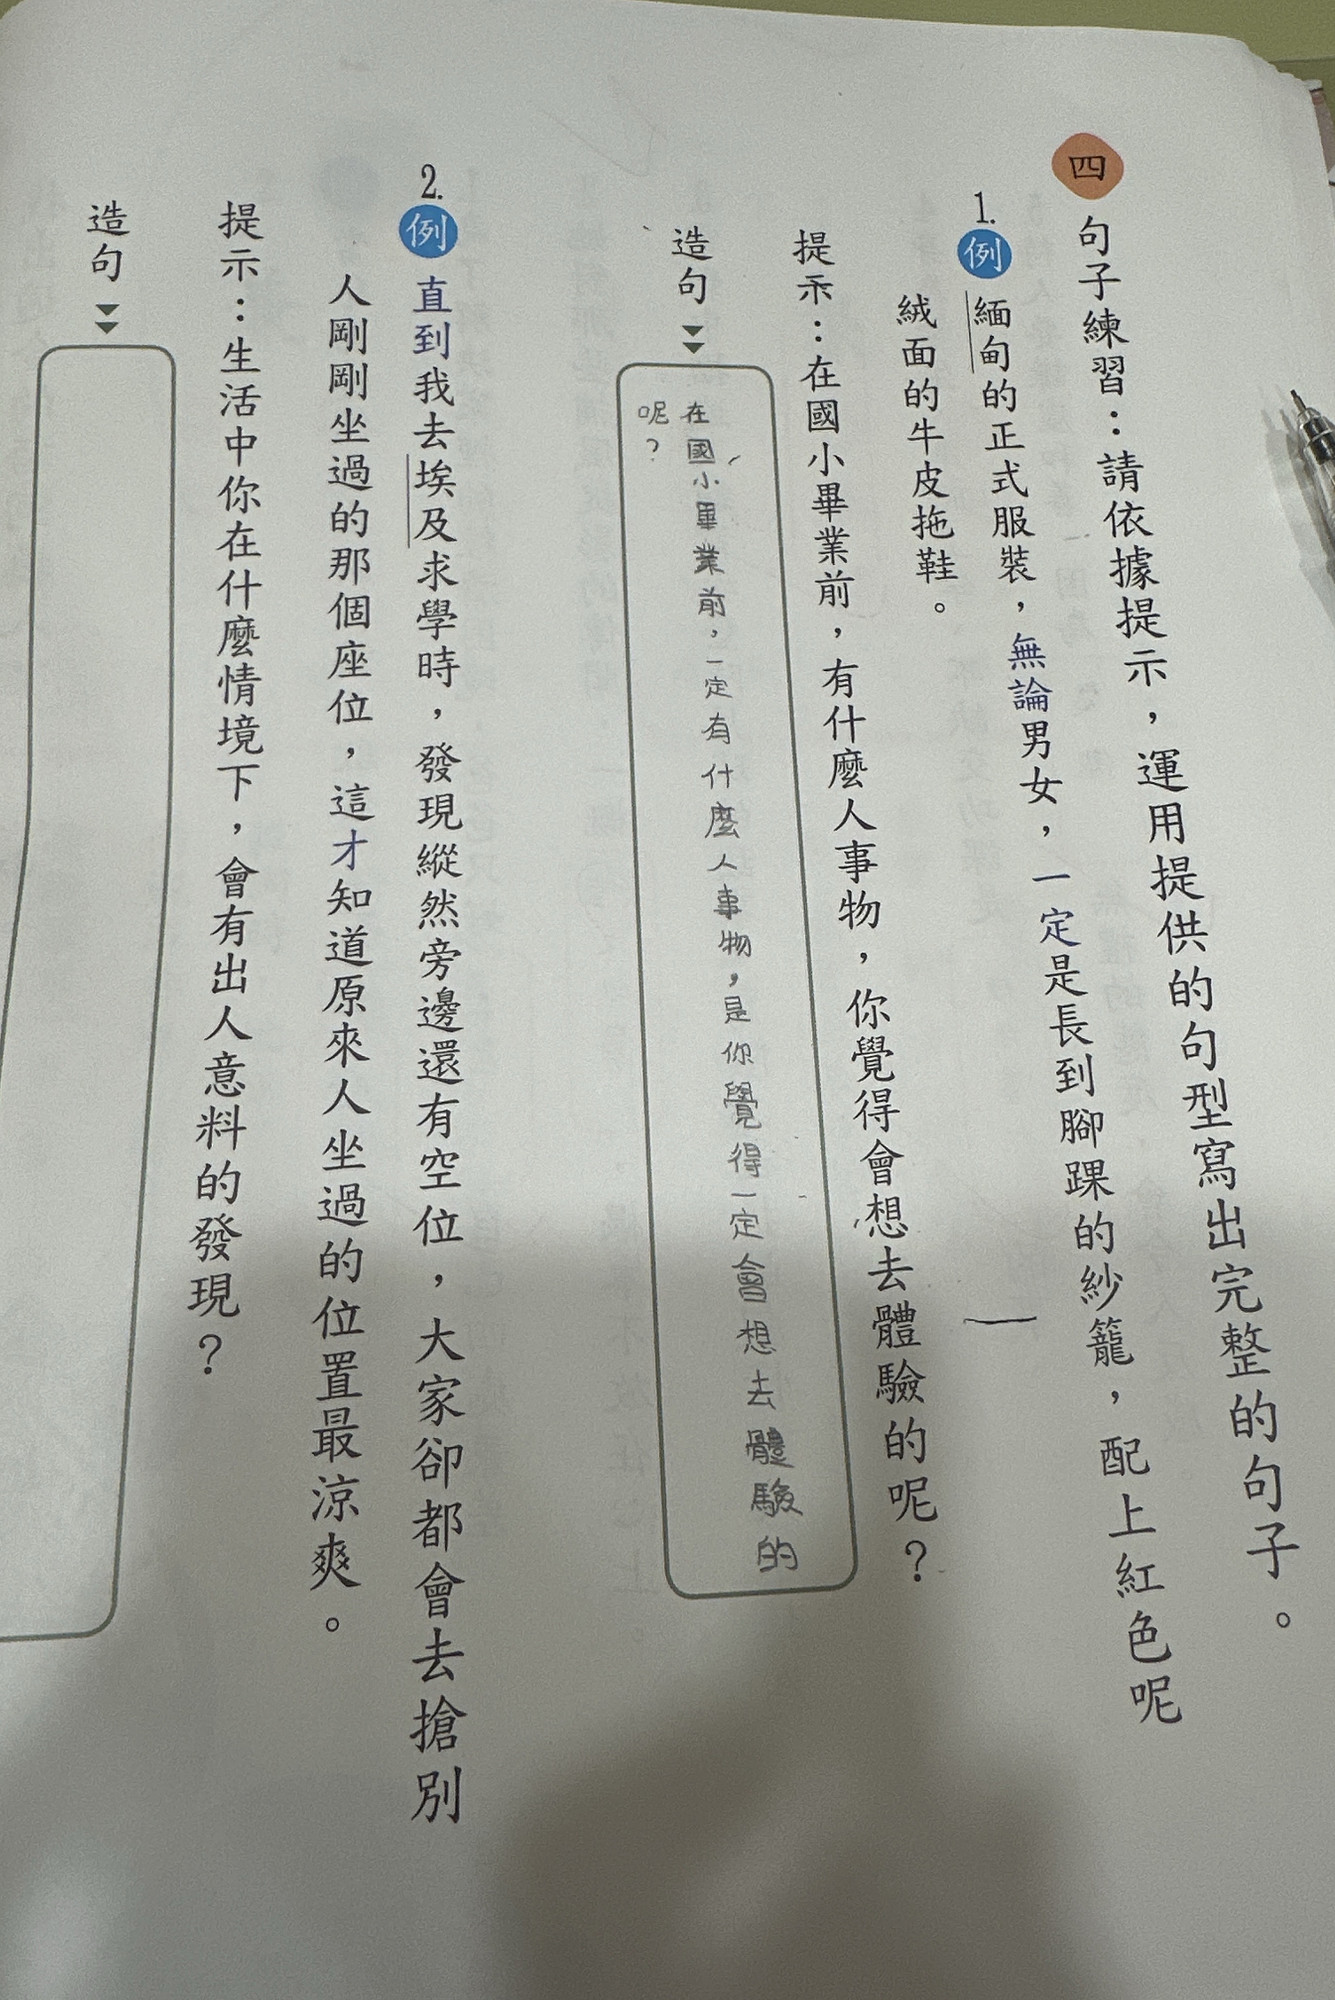 四 句子練習：請依據提示，運用提供的句型寫出完整的句子。
1. 例 緬甸的正式服裝，無論男女，一定是長到腳踝的紗籠，配上紅色呢
絨面的牛皮拖鞋。
提示：在國小畢業前，有什麼人事物，你覺得會想去體驗的呢？
造句
在國小畢業前，一定有什麼人事物，是你覺得一定會想去體驗的
呢？
2. 例 直到我去埃及求學時，發現縱然旁邊還有空位，大家卻都會去搶別
人剛剛坐過的那個座位，這才知道原來人坐過的位置最涼爽。
提示：生活中你在什麼情境下，會有出人意料的發現？
造句